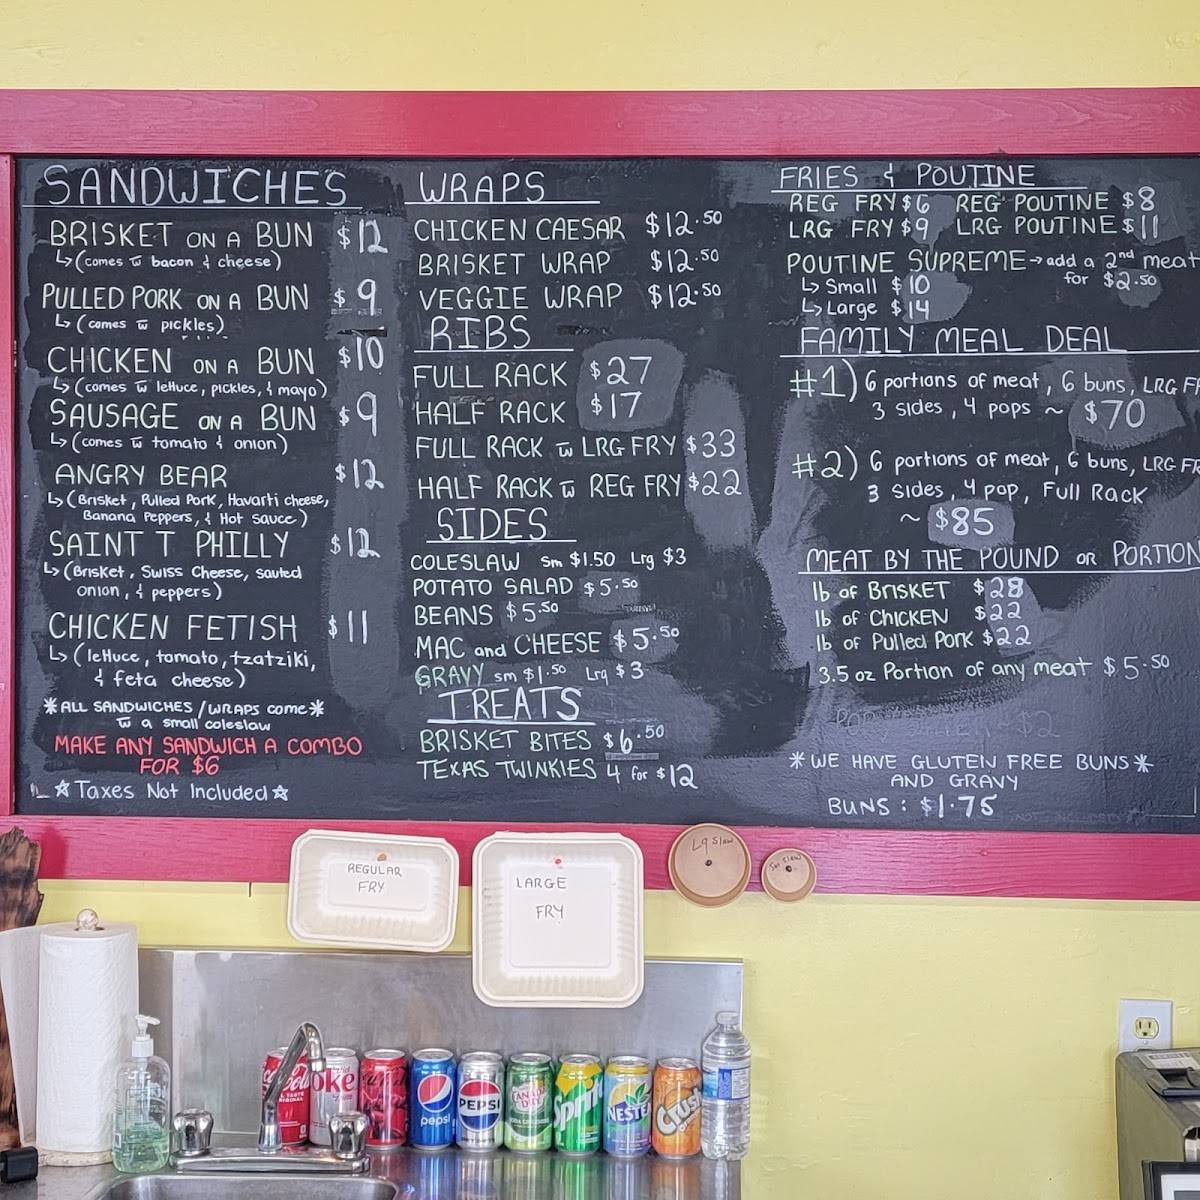 SANDWICHES
BRISKET ON A BUN $12
↳(comes w bacon & cheese)
PULLED PORK ON A BUN $9
↳(comes w pickles)
CHICKEN ON A BUN $10
↳(comes w lettuce, pickles, & mayo)
SAUSAGE ON A BUN $9
↳(comes w tomato & onion)
ANGRY BEAR $12
↳(Brisket, Pulled Pork, Havarti cheese,
Banana Peppers, & Hot Sauce)
SAINT T PHILLY $12
↳(Brisket, Swiss Cheese, sauted
onion, & peppers)
CHICKEN FETISH $11
↳(lettuce, tomato, tzatziki,
& feta cheese)
*ALL SANDWICHES/WRAPS come*
w a small coleslaw
MAKE ANY SANDWICH A COMBO
FOR $6
☆Taxes Not Included☆
WRAPS
CHICKEN CAESAR $12.50
BRISKET WRAP $12.50
VEGGIE WRAP $12.50
RIBS
FULL RACK $27
HALF RACK $17
FULL RACK w LRG FRY $33
HALF RACK w REG FRY $22
SIDES
COLESLAW sm $1.50 Lrg $3
POTATO SALAD $5.50
BEANS $5.50
MAC and CHEESE $5.50
GRAVY sm $1.50 Lrg $3
TREATS
BRISKET BITES $6.50
TEXAS TWINKIES 4 for $12
FRIES & POUTINE
REG FRY $6 REG POUTINE $8
LRG FRY $9 LRG POUTINE $11
POUTINE SUPREME→add a 2nd meat
↳Small $10 for $2.50
↳Large $14
FAMILY MEAL DEAL
#1) 6 portions of meat, 6 buns, LRG FR
3 sides, 4 pops ~ $70
#2) 6 portions of meat, 6 buns, LRG FR
3 sides, 4 pop, Full Rack
~ $85
MEAT BY THE POUND OR PORTION
lb of BRISKET $28
lb of CHICKEN $22
lb of Pulled Pork $22
3.5 oz Portion of any meat $5.50
*WE HAVE GLUTEN FREE BUNS*
AND GRAVY
BUNS: $1.75
REGULAR
FRY
LARGE
FRY
Lg Slaw
Sm Slaw
oke
pepsi
PEPSI
CANADA
DRY
Sprite
NESTEA
Crush